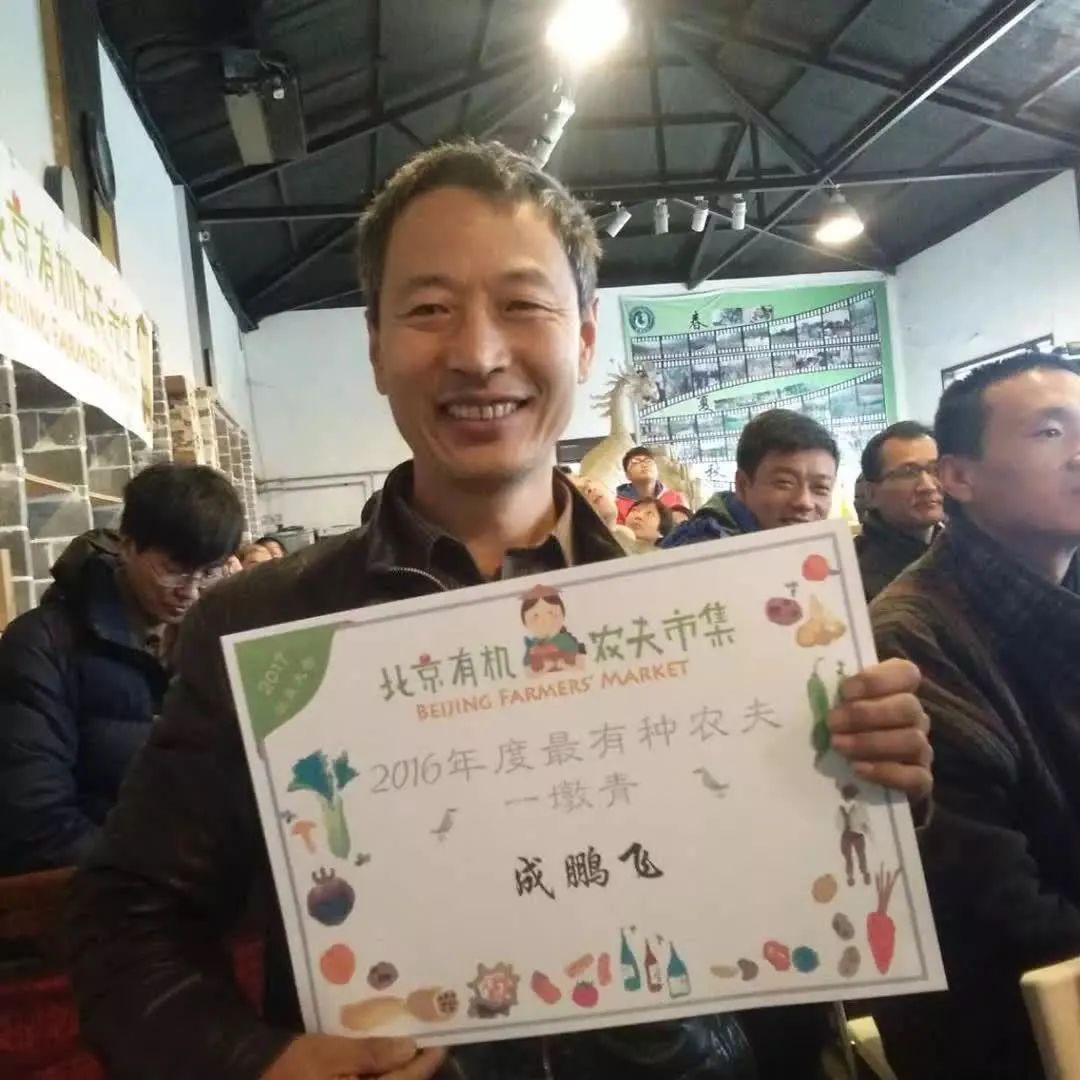 北京有机农夫市集
BEIJING FARMERS' MARKET
春
夏
秋
2017
北京有机农夫市集
BEIJING FARMERS' MARKET
2016年度最有种农夫
一墩青
成鹏飞